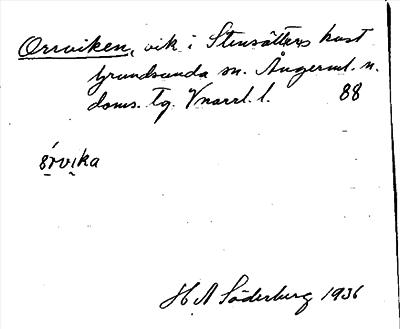 Orrviken, vik i Stensätters kust
Grundsunda sn. Ångerml. n.
doms. tg. Vnorrl. l. 88
ørvika
H A Söderberg 1936